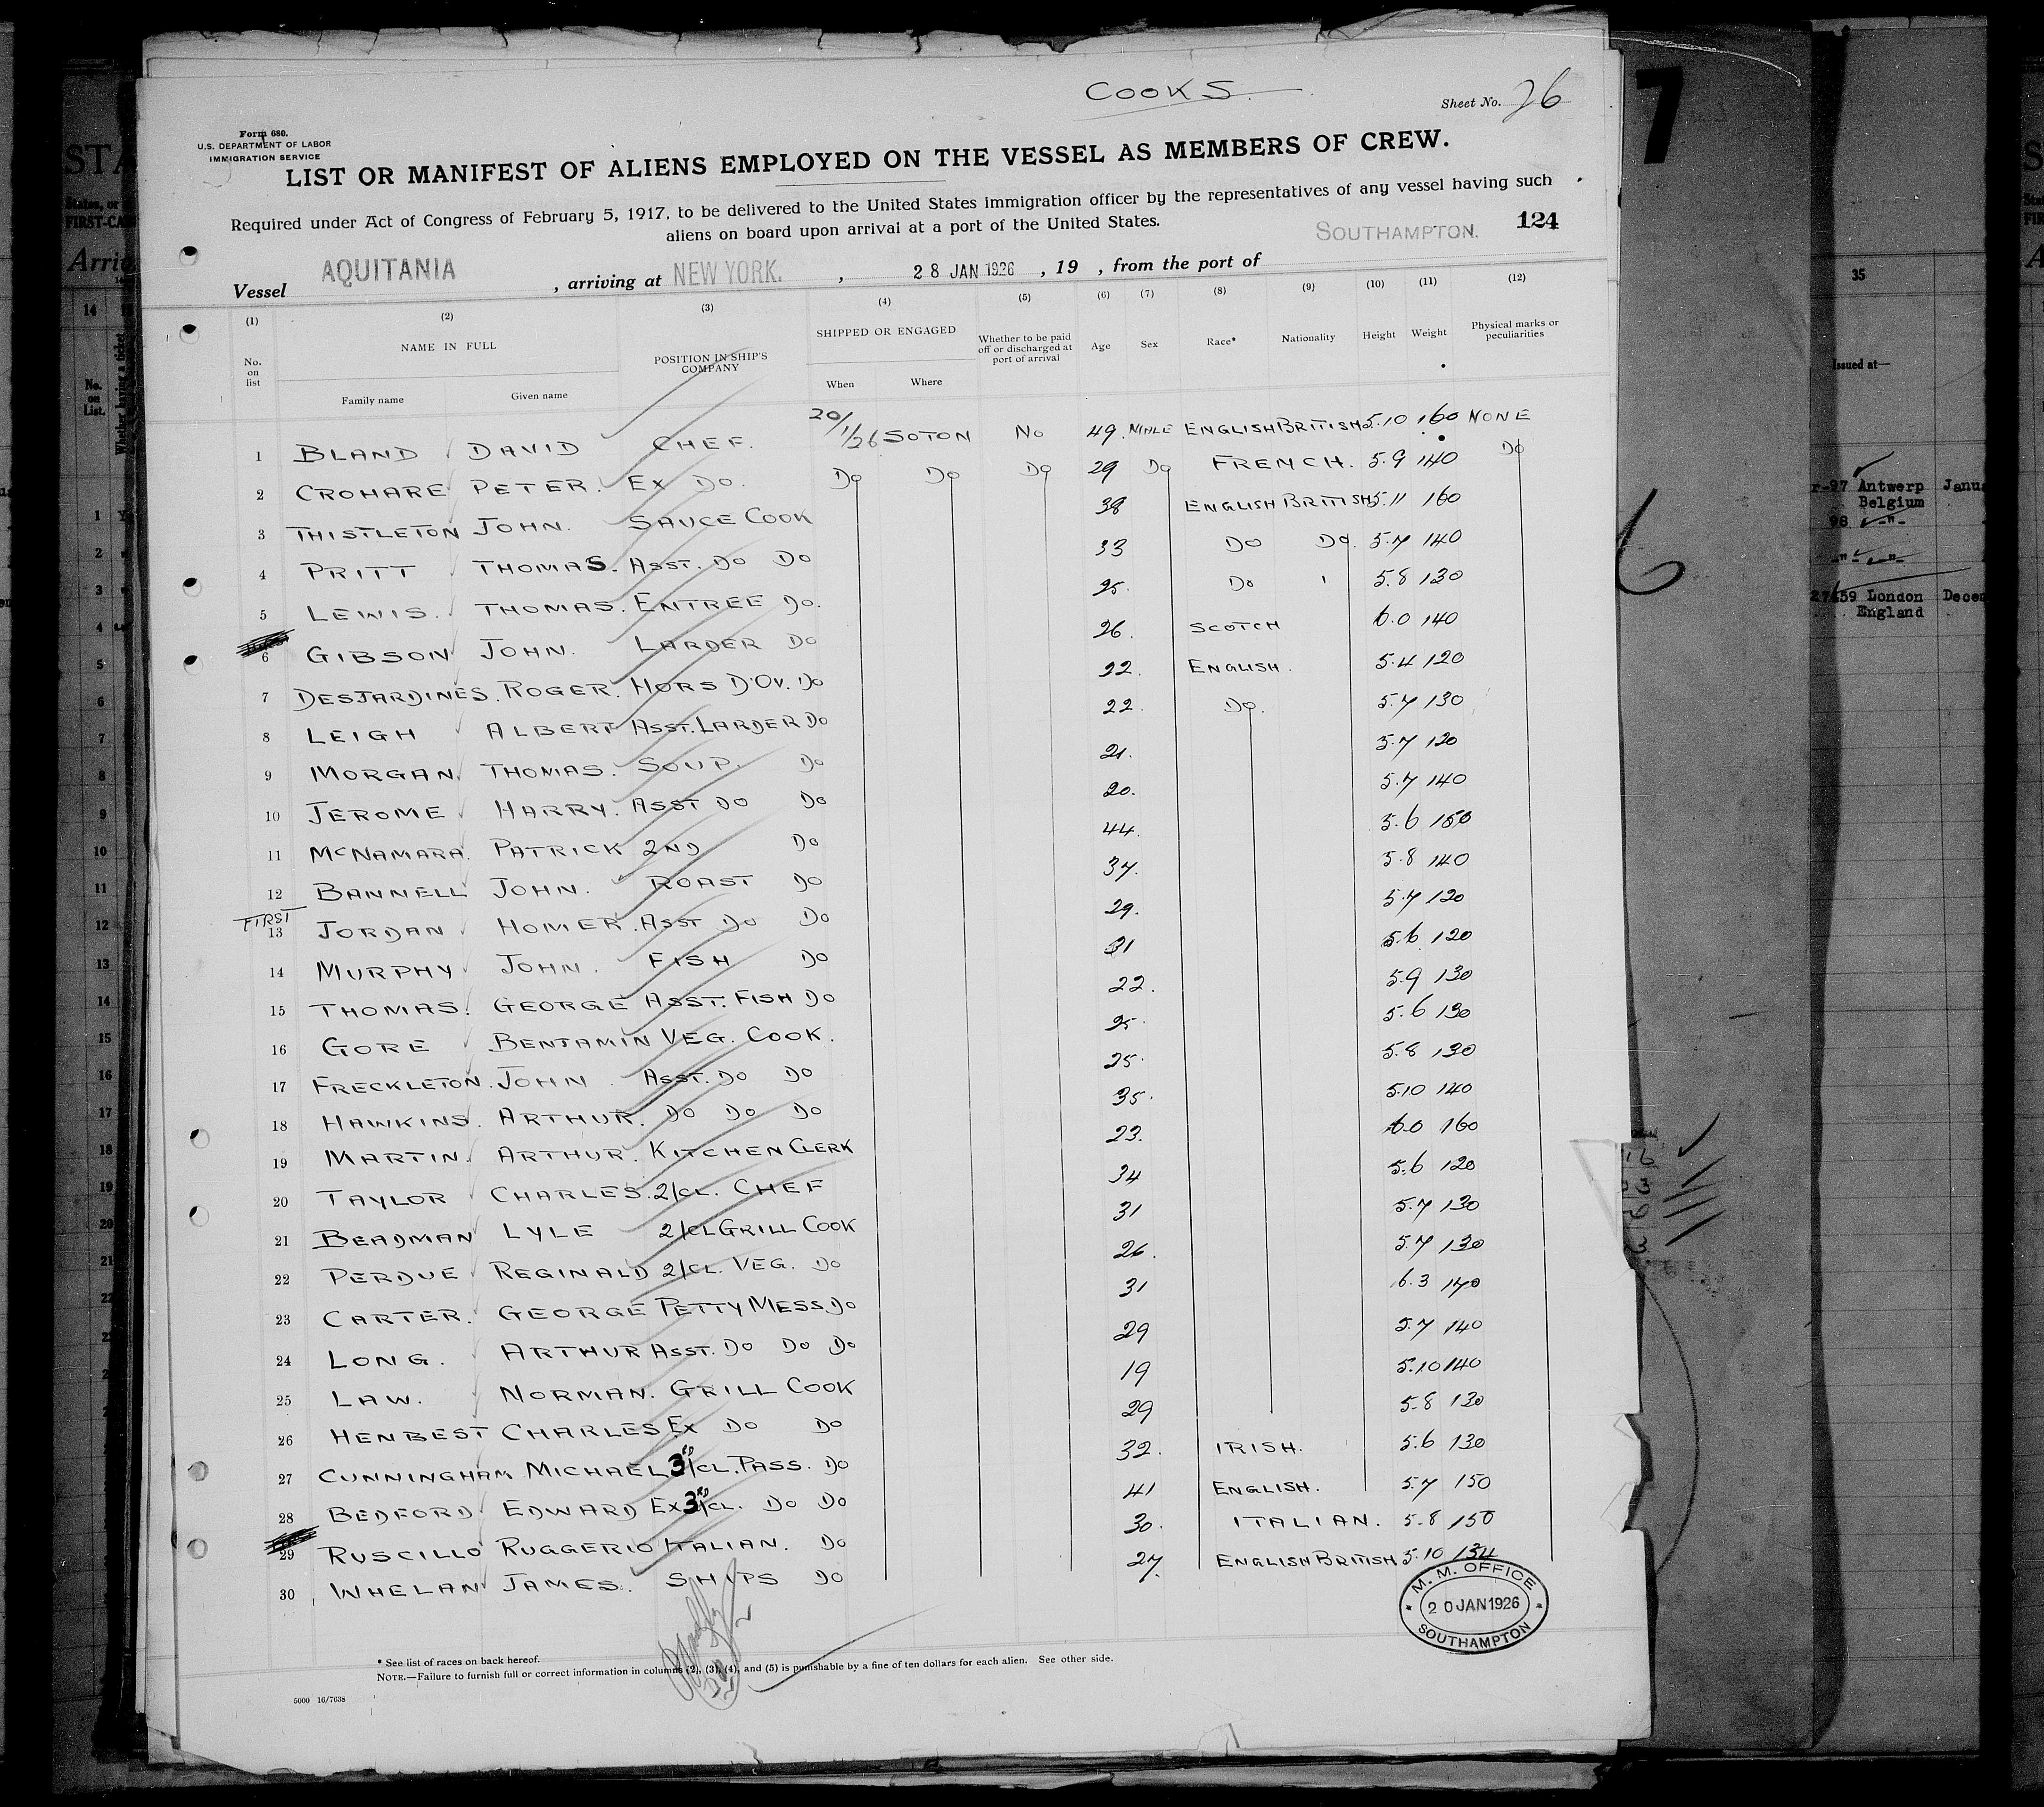 COOKS.
Sheet No. 26
Form 680.
U.S. DEPARTMENT OF LABOR
IMMIGRATION SERVICE
LIST OR MANIFEST OF ALIENS EMPLOYED ON THE VESSEL AS MEMBERS OF CREW.
Required under Act of Congress of February 5, 1917, to be delivered to the United States immigration officer by the representatives of any vessel having such
aliens on board upon arrival at a port of the United States.
124
Vessel AQUITANIA, arriving at NEW YORK., 28 JAN 1926, 19 , from the port of SOUTHAMPTON.
(1) (2) (3) (4) (5) (6) (7) (8) (9) (10) (11) (12)
No. on list NAME IN FULL POSITION IN SHIP'S COMPANY SHIPPED OR ENGAGED Whether to be paid off or discharged at port of arrival Age Sex Race* Nationality Height Weight Physical marks or peculiarities
Family name Given name When Where
1 BLAND DAVID CHEF. 20/1/26 SOTON No 49. MALE ENGLISH BRITISH 5.10 160 NONE
2 CROHARE PETER. EX DO. Do Do Do 29 Do FRENCH. 5.9 140 Do
3 THISTLETON JOHN. SAUCE COOK 38 ENGLISH BRITISH 5.11 160
4 PRITT THOMAS. ASST. DO DO 33 DO DO. 5.7 140
5 LEWIS. THOMAS. ENTREE DO. 25. Do 5.8 130
6 GIBSON JOHN. LARDER DO 26. SCOTCH 6.0 140
7 DESJARDINES. ROGER. HORS D'OV. DO 22. ENGLISH. 5.4 120
8 LEIGH ALBERT ASST. LARDER DO 22. Do. 5.7 130
9 MORGAN THOMAS. SOUP. DO 21. 5.7 120
10 JEROME HARRY. ASST DO DO 20. 5.7 140
11 McNAMARA. PATRICK 2ND DO 44. 5.6 150
12 BANNELL JOHN. ROAST DO 37. 5.8 140
FIRST
13 JORDAN HOMER. ASST DO DO 29. 5.7 120
14 MURPHY JOHN. FISH DO 31 5.6 120
15 THOMAS. GEORGE ASST. FISH DO 22. 5.9 130
16 GORE BENJAMIN VEG. COOK. 25. 5.6 130
17 FRECKLETON. JOHN ASST. DO DO 25. 5.8 130
18 HAWKINS. ARTHUR. DO DO DO 35. 5.10 140
19 MARTIN. ARTHUR. KITCHEN CLERK 23. 6.0 160
20 TAYLOR CHARLES. 2/CL. CHEF 34 5.6 120
21 BEADMAN LYLE 2/CL GRILL COOK 31 5.7 130
22 PERDUE REGINALD 2/CL. VEG. DO 26. 5.7 130
23 CARTER. GEORGE PETTY MESS. DO 31 6.3 170
24 LONG. ARTHUR ASST. DO DO DO 29 5.7 140
25 LAW. NORMAN. GRILL COOK 19 5.10 140
26 HENBEST CHARLES EX DO DO 29 5.8 130
27 CUNNINGHAM MICHAEL 3RD/CL. PASS. DO 32. IRISH. 5.6 130
28 BEDFORD EDWARD EX 3RD/CL. DO DO 41 ENGLISH. 5.7 150
29 RUSCILLO RUGGERIO ITALIAN. DO 30. ITALIAN. 5.8 150
30 WHELAN JAMES. SHIPS DO 27. ENGLISH BRITISH 5.10 134
M. M. OFFICE
20 JAN 1926
SOUTHAMPTON
* See list of races on back hereof.
NOTE.—Failure to furnish full or correct information in columns (2), (3), (4), and (5) is punishable by a fine of ten dollars for each alien. See other side.
5000 16/7638
7
6
35
Issued at—
Antwerp Janu
Belgium
98
27659 London Decem
England
STA
States, or
FIRST-CA
14
No. on List.
Whether having a ticket